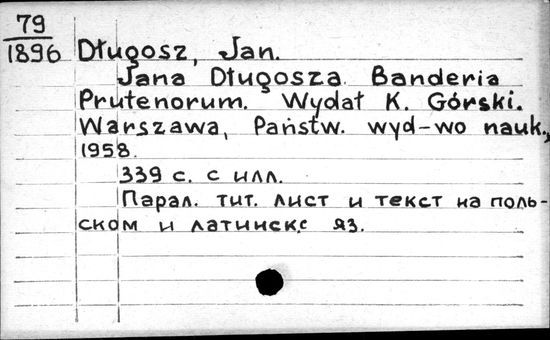 79
1896
Długosz, Jan.
Jana Długosza Banderia
Prutenorum. Wydał K. Górski.
Warszawa, Państw. wyd-wo nauk.,
1958.
339 с. с илл.
Парал. тит. лист и текст на поль-
ском и латинске яз.